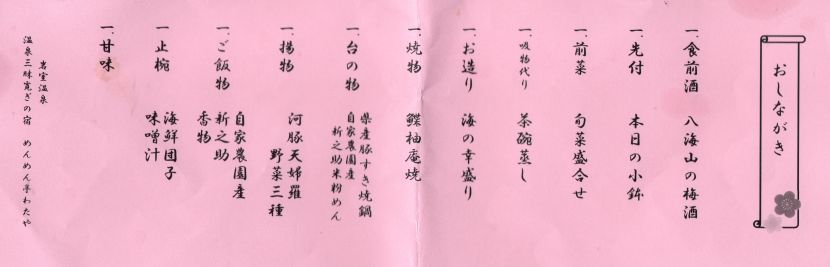 おしながき
一、食前酒 八海山の梅酒
一、先付 本日の小鉢
一、前菜 旬菜盛合せ
一、吸物代り 茶碗蒸し
一、お造り 海の幸盛り
一、焼物 鰈柚庵焼
一、台の物 県産豚すき焼鍋
自家農園産
新之助米粉めん
一、揚物 河豚天婦羅
野菜三種
一、ご飯物 自家農園産
新之助
香物
一、止椀 海鮮団子
味噌汁
一、甘味
岩室温泉
温泉三昧寛ぎの宿 めんめん亭わたや